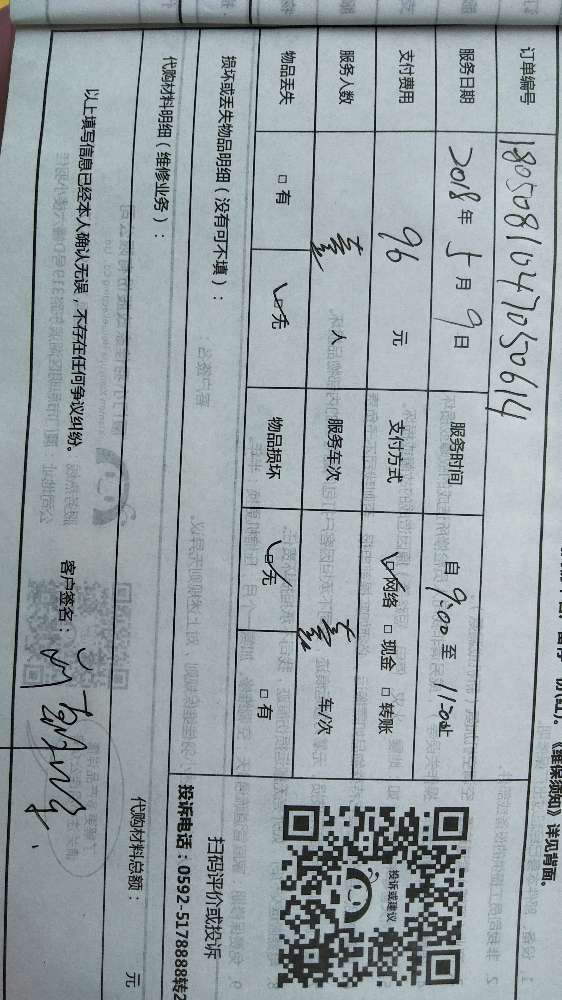 《维保须知》详见背面。
订单编号 1805081047050614
服务日期 2018年5月9日 服务时间 自9:00至11:00止
支付费用 96元 支付方式 ☑网络 □现金 □转账
服务人数 壹人 服务车次 壹车/次
物品丢失 □有 ☑无 物品损坏 ☑无 □有
损坏或丢失物品明细（没有可不填）：
代购材料明细（维修业务）：
代购材料总额： 元
以上填写信息已经本人确认无误，不存在任何争议纠纷。 客户签名：
投诉或建议
扫码评价或投诉
投诉电话：0592-5178888转2